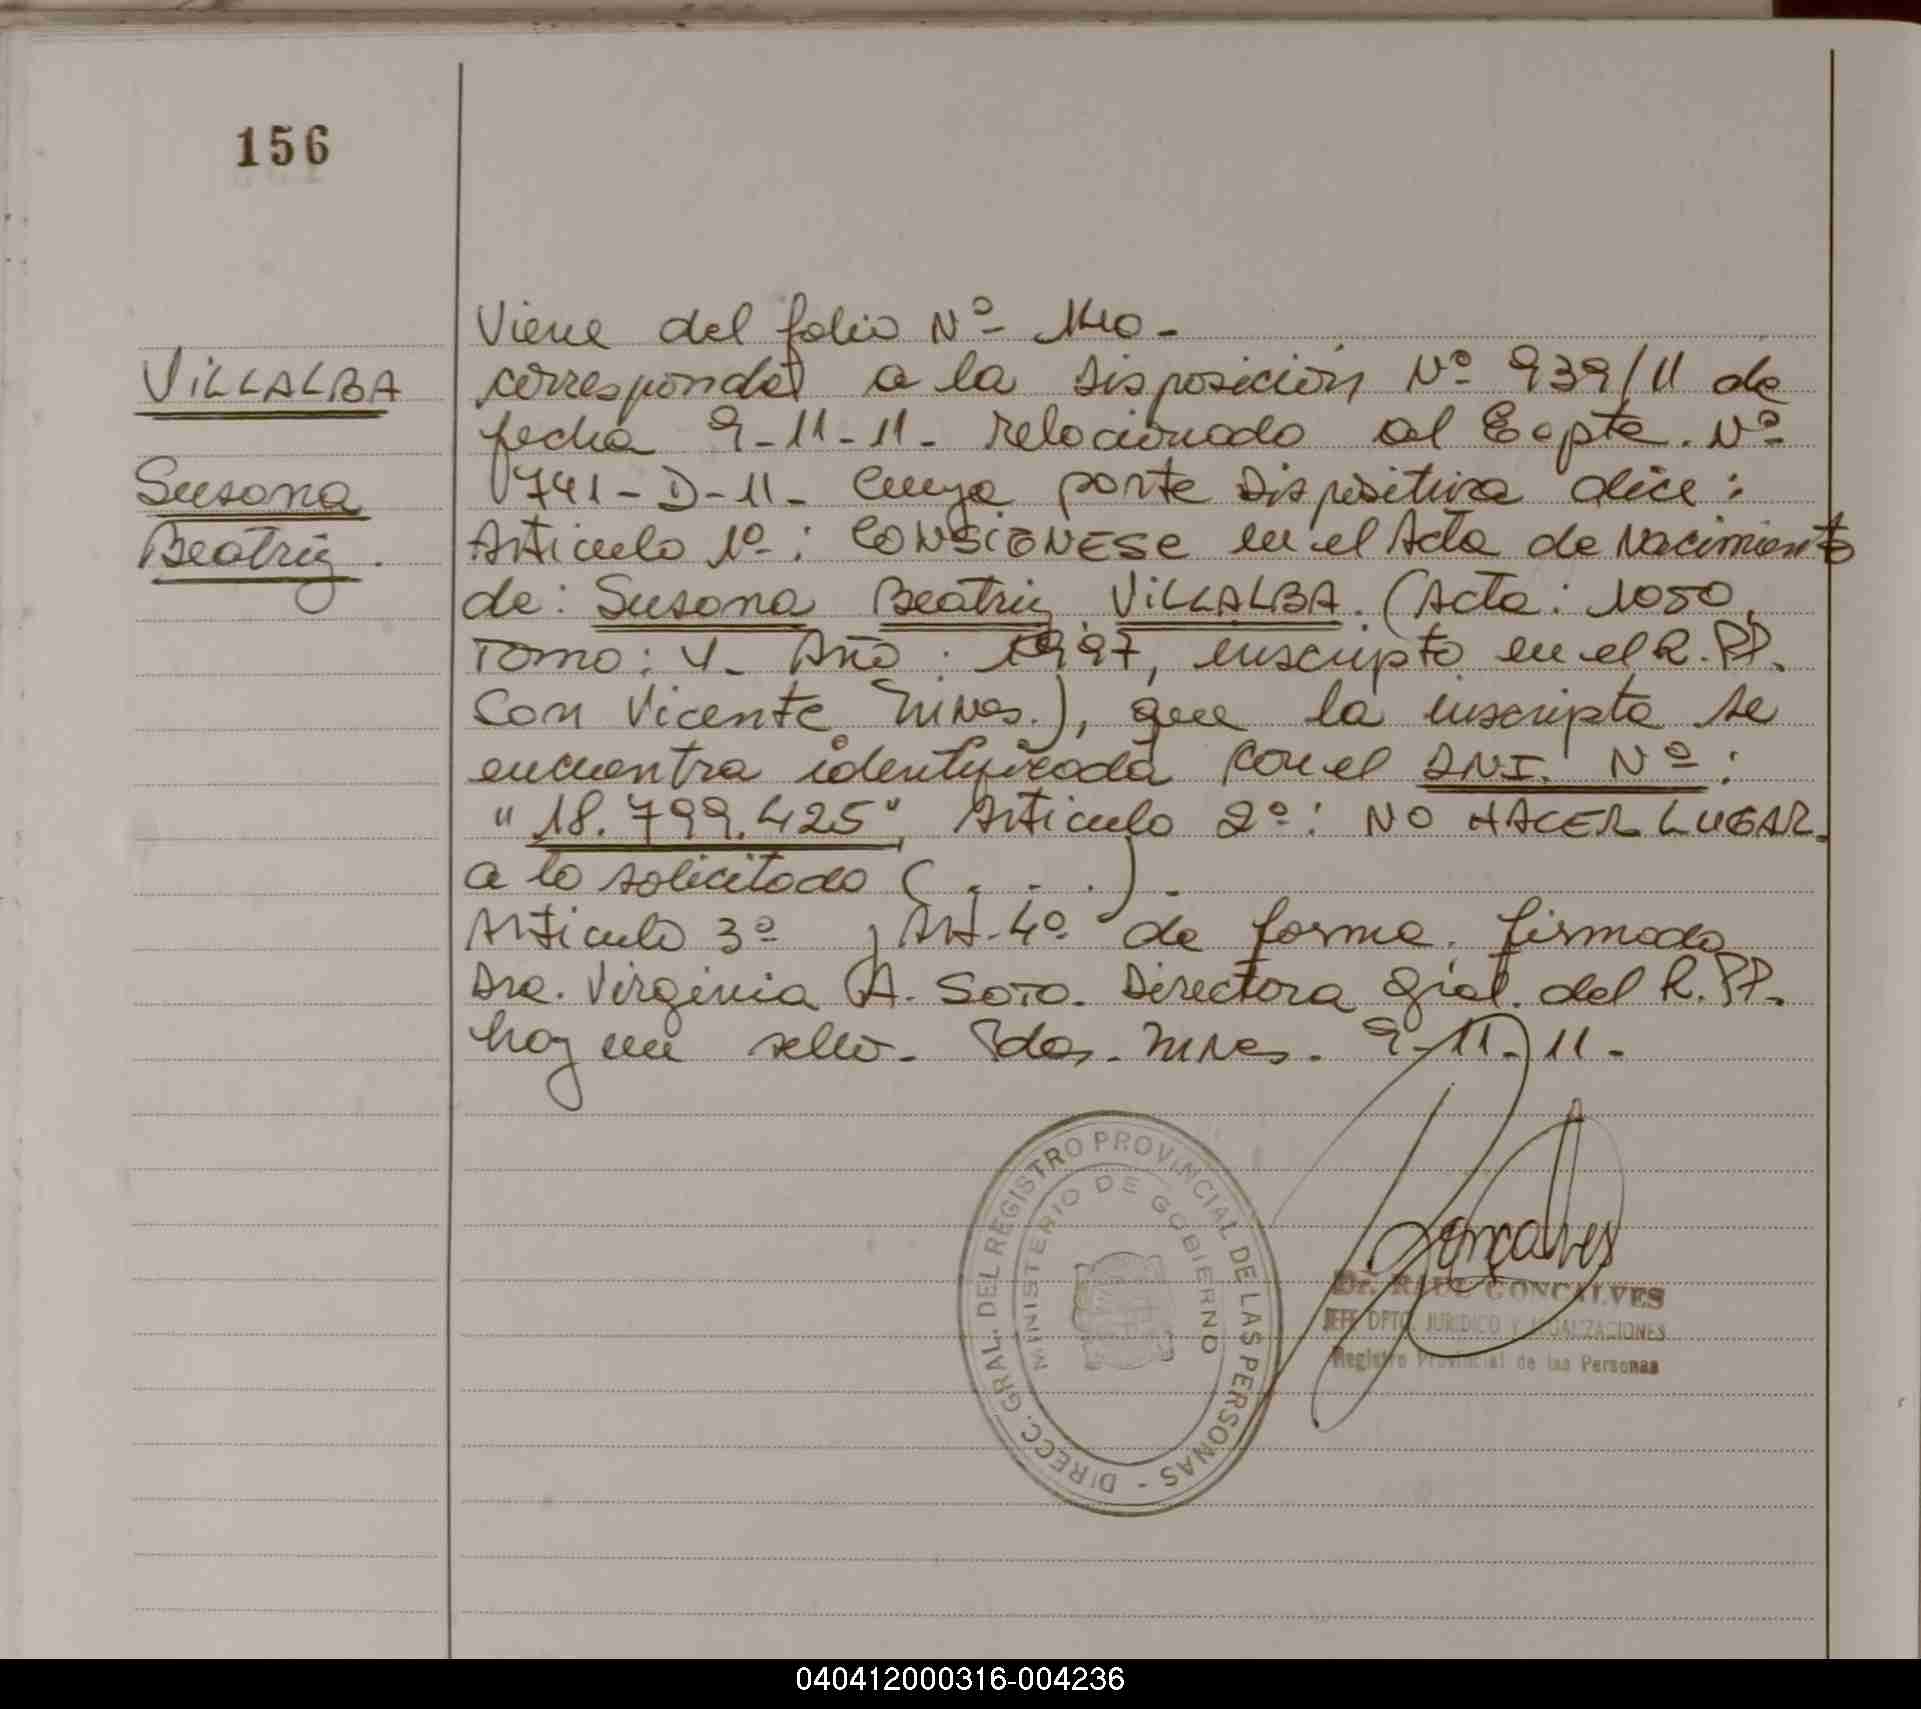 156
VILLALBA
Susana
Beatriz.
Viene del folio Nº 140.-
corresponde a la Disposición Nº 939/11 de
fecha 9-11-11- relacionado al Expte. Nº
1741-D-11- cuya parte Dispositiva dice:
Artículo 1º: CONSIGNESE en el Acta de Nacimiento
de: Susana Beatriz VILLALBA. (Acta: 1050,
Tomo: V- Año: 1997, inscripto en el R.PP.
Con Vicente Mnes.), que la inscripta se
encuentra identificada con el DNI. Nº:
"18.799.425", Artículo 2º: NO HACER LUGAR
a lo solicitado (. . .).-
Artículo 3º y Art. 4º de forma. firmado
Dra. Virginia A. Soto. Directora Gral. del R.PP.
hay un sello- Pdas. Mnes. 9-11-11-
DIRECC. GRAL. DEL REGISTRO PROVINCIAL DE LAS PERSONAS -
MINISTERIO DE GOBIERNO
Gonçalves
Dr. RAUL GONCALVES
JEFE DPTO. JURIDICO Y LEGALIZACIONES
Registro Provincial de las Personas
040412000316-004236